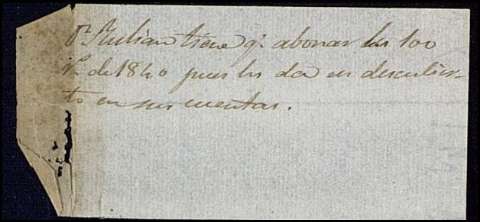 Dn. Julian tiene q. abonar los 100
de 1840 pues los da en descubier-
to en sus cuentas.